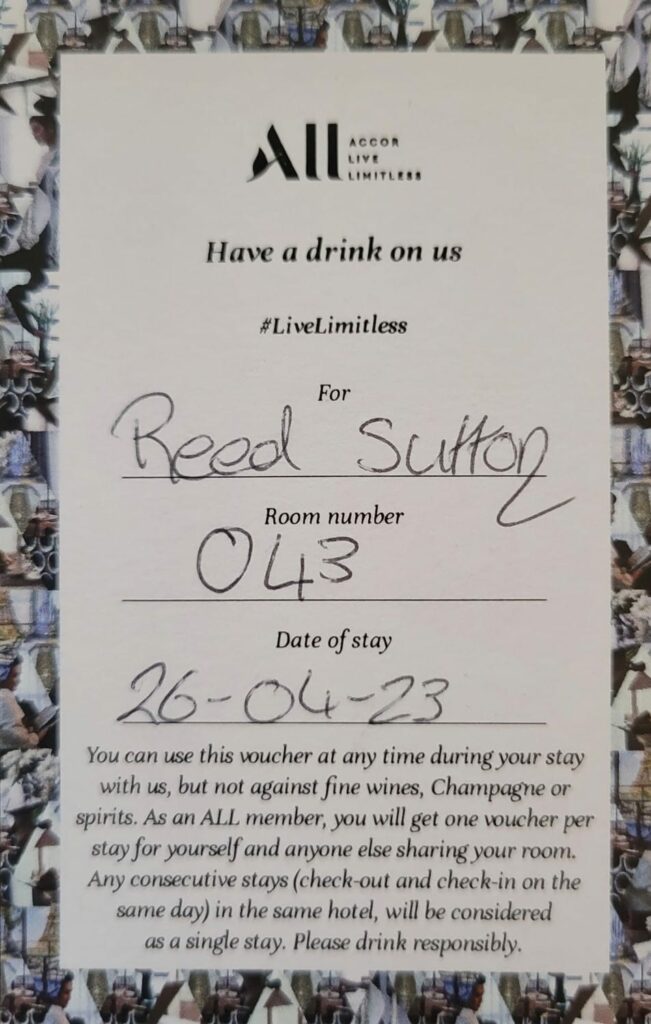 All ACCOR
LIVE
LIMITLESS
Have a drink on us
#LiveLimitless
For
Reed Sutton
Room number
043
Date of stay
26-04-23
You can use this voucher at any time during your stay
with us, but not against fine wines, Champagne or
spirits. As an ALL member, you will get one voucher per
stay for yourself and anyone else sharing your room.
Any consecutive stays (check-out and check-in on the
same day) in the same hotel, will be considered
as a single stay. Please drink responsibly.